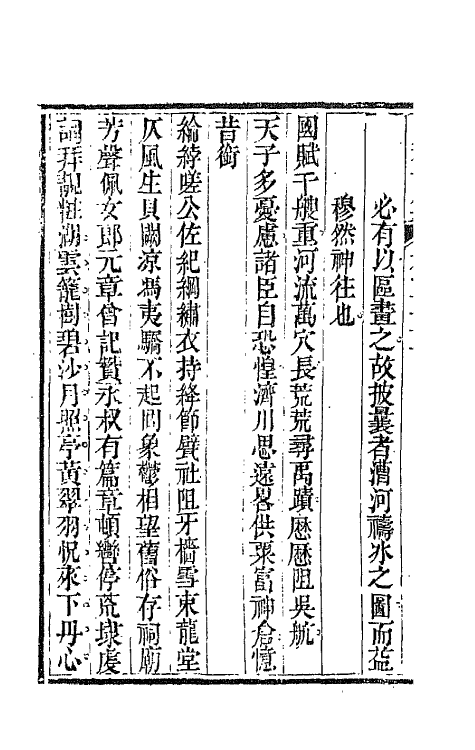 必有以區畫之故披曩者漕河禱氷之圖而益
穆然神往也
國賦千艘重河流萬穴長荒荒尋禹蹟厯厯阻吳航
天子多憂慮諸臣自恐惶濟川思遠畧供粟富神倉憶
昔銜
綸綍嗟公佐紀綱繡衣持絳節甓社阻牙檣雪東龍堂
仄風生貝闕凉馮夷驕不起罔象鬱相望舊俗存祠廟
芳聲佩女郎元章曾記贊永叔有篇章頓轡停荒埭虔
詞拜靚粧湖雲籠樹碧沙月照亭黃翠羽怳來下丹心